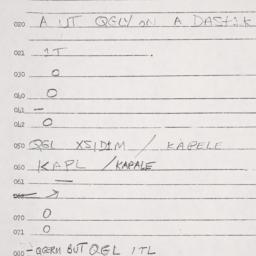 020 A UT QGLY on A DASTIK
021 1T .
030 0
040 0
041 –
042 0
050 QGL XSIDIM / KAPELE
060 KAPL / KAPALE
061 —
→
070 0
071 0
080 – QGRM BUT QGL ITL